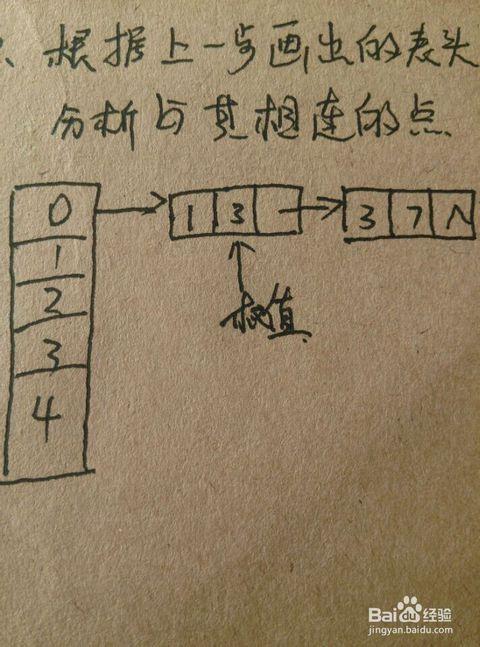 、根据上一步画出的表头
分析与其相连的点
0 1 3 3 7 ∧
1
2
权值
3
4
Baidu经验
jingyan.baidu.com